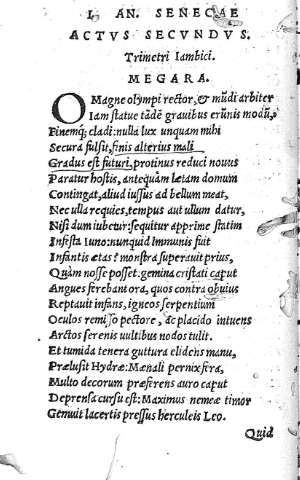 L. AN. SENECAE
ACTVS SECVNDVS.
Trimetri Iambici.
MEGARA.
O Magne olympi rector, & mũdi arbiter
Iam statue tãdẽ grauibus erũnis modũ,
Finemq; cladi: nulla lux unquam mihi
Secura fulsit, finis alterius mali
Gradus est futuri, protinus reduci nouus
Paratur hostis, antequàm lætam domum
Contingat, aliud iussus ad bellum meat,
Nec ulla requies, tempus aut ullum datur,
Nisi dum iubetur: sequitur apprime statim
Infesta Iuno: nunquid immunis fuit
Infantis ætas? monstra superauit prius,
Quàm nosse posset: gemina cristati caput
Angues ferebant ora, quos contra obuius
Reptauit infans, igneos serpentium
Oculos remisso pectore, ac placido intuens
Arctos serenis uultibus nodos tulit.
Et tumida tenera guttura elidens manu,
Prælusit Hydræ: Mænali pernix fera,
Multo decorum præferens auro caput
Deprensa cursu est: Maximus nemeæ timor
Gemuit lacertis pressus herculeis Leo.
Quid